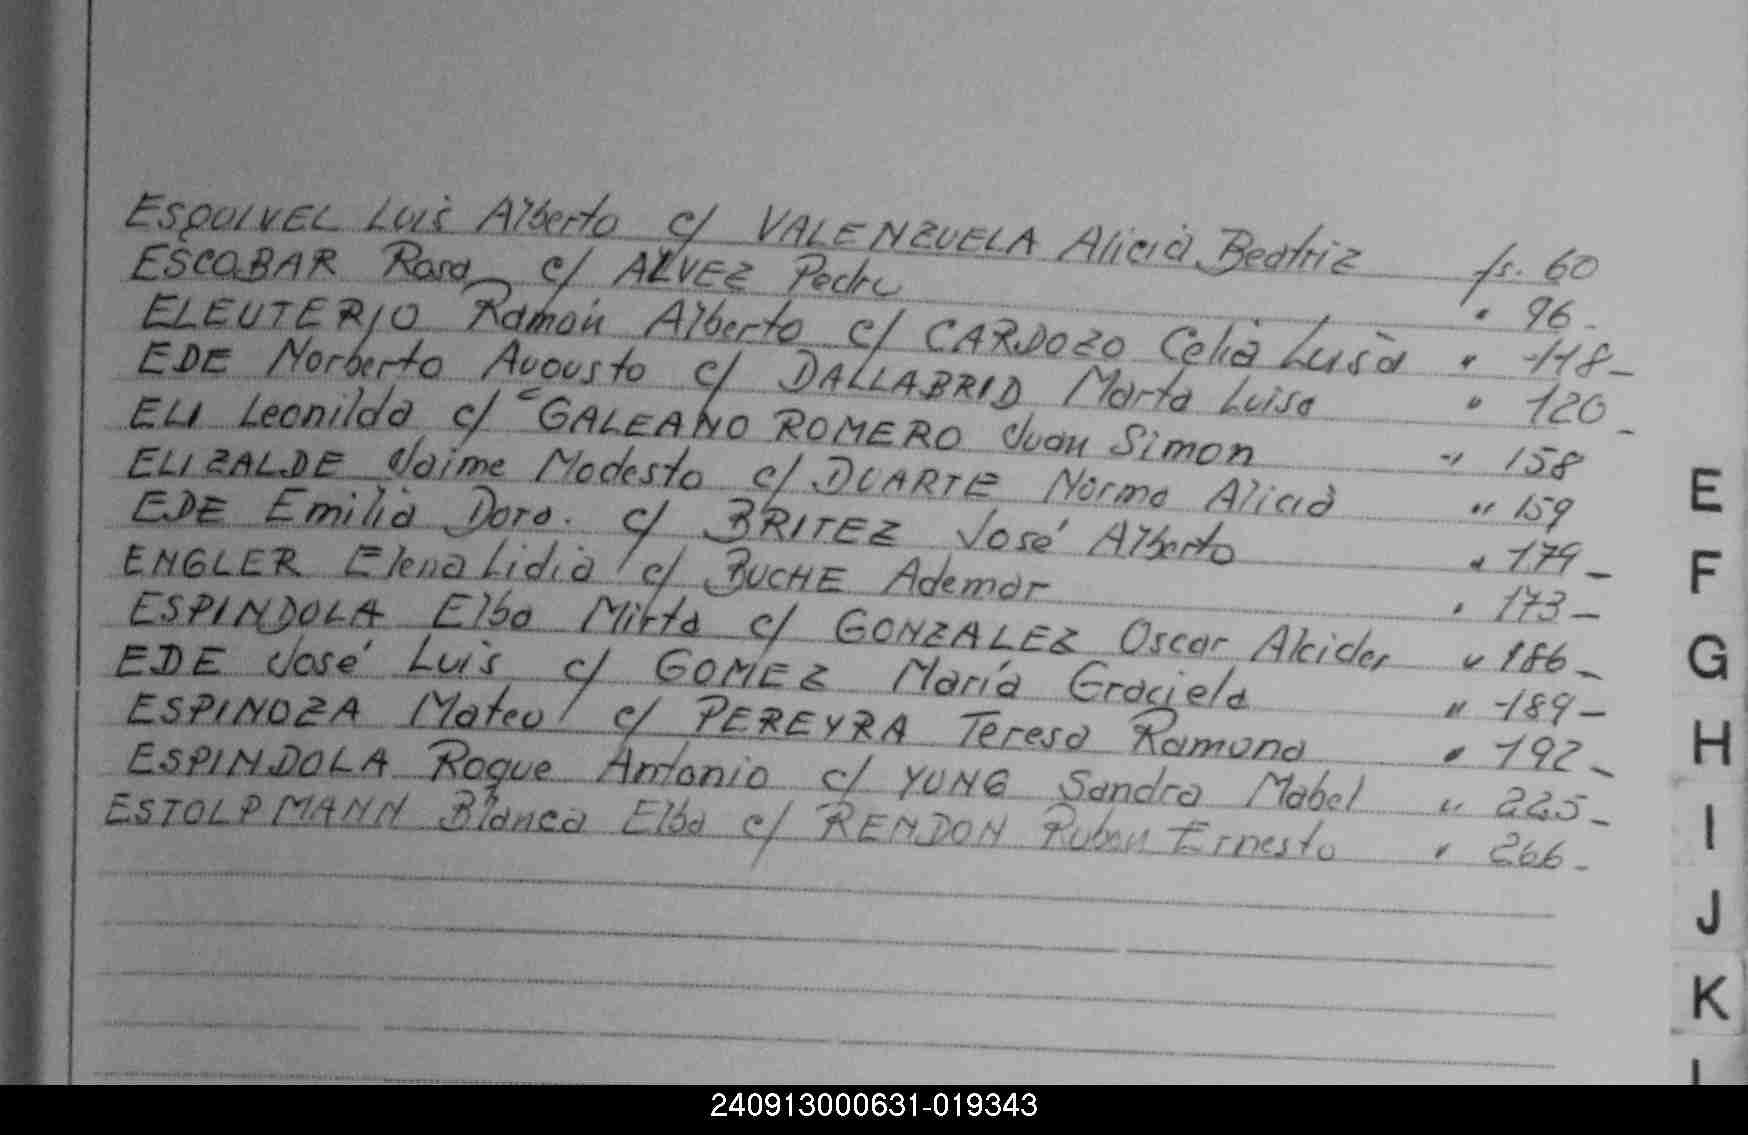 ESQUIVEL Luis Alberto c/ VALENZUELA Alicia Beatriz fs. 60
ESCOBAR Rosa c/ ALVEZ Pedro " 96-
ELEUTERIO Ramón Alberto c/ CARDOZO Celia Luisa " 118-
EDE Norberto Augusto c/ DALLABRID Marta Luisa " 120-
ELI Leonilda c/ GALEANO ROMERO Juan Simon " 158
ELIZALDE Jaime Modesto c/ DUARTE Norma Alicia " 159
EDE Emilia Dora. c/ BRITEZ José Alberto " 179-
ENGLER Elena Lidia c/ BUCHE Ademar " 173-
ESPINDOLA Elba Mirta c/ GONZALEZ Oscar Alcides " 186-
EDE José Luis c/ GOMEZ María Graciela " 189-
ESPINOZA Mateo c/ PEREYRA Teresa Ramona " 192-
ESPINDOLA Roque Antonio c/ YUNG Sandra Mabel " 225-
ESTOLPMANN Blanca Elba c/ RENDON Ruben Ernesto " 266-
E
F
G
H
I
J
K
240913000631-019343